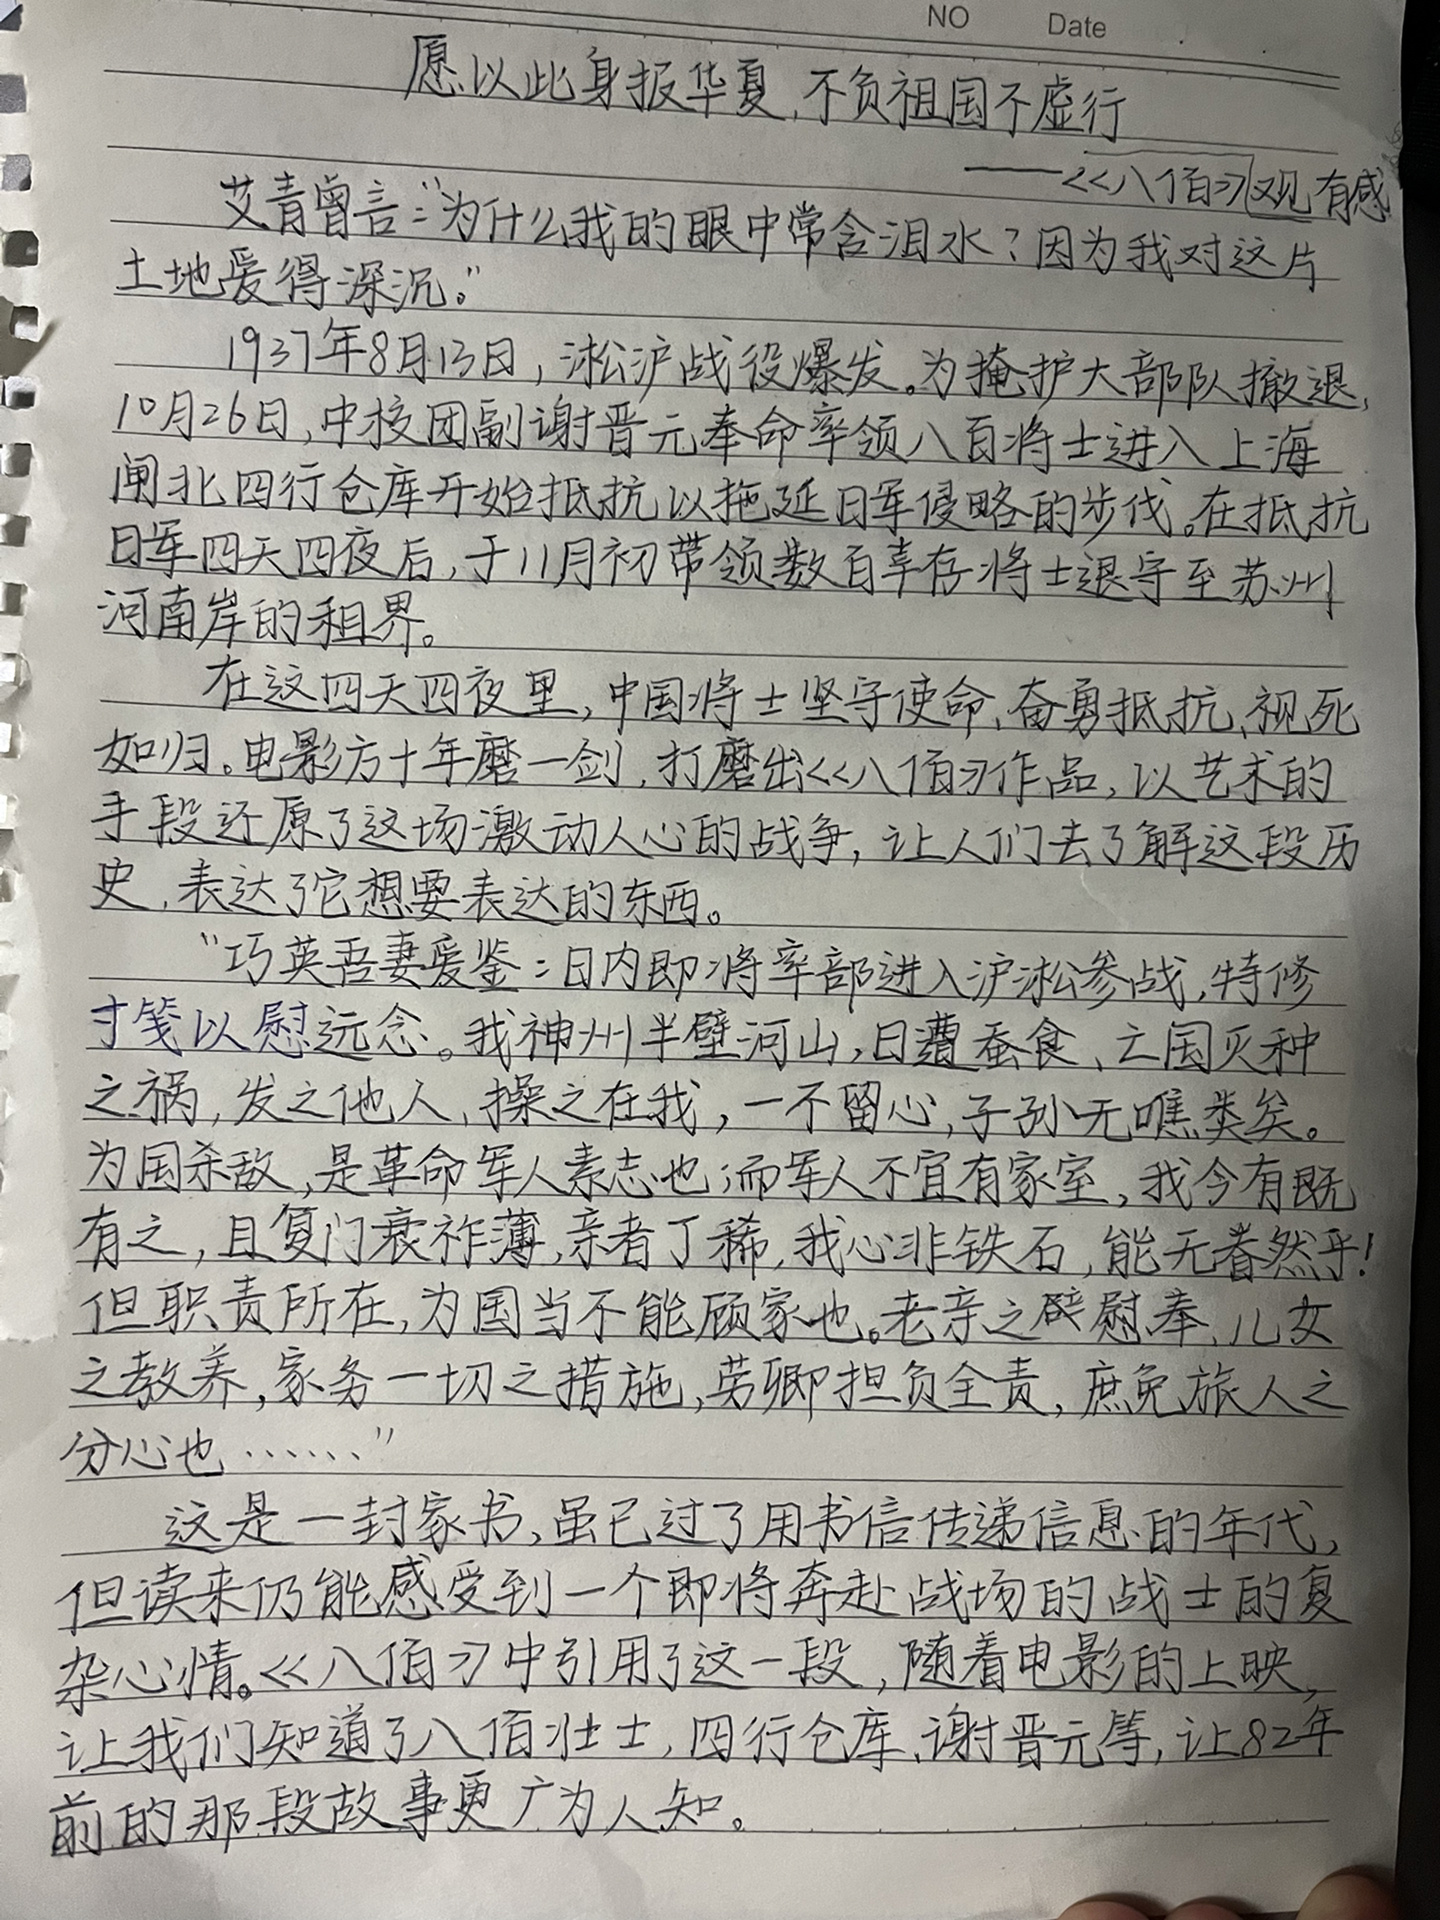 NO Date
愿以此身报华夏,不负祖国不虚行
——《八佰》观有感
艾青曾言:“为什么我的眼中常含泪水?因为我对这片
土地爱得深沉。”
1937年8月13日,淞沪战役爆发。为掩护大部队撤退,
10月26日,中校团副谢晋元奉命率领八百将士进入上海
闸北四行仓库开始抵抗以拖延日军侵略的步伐。在抵抗
日军四天四夜后,于11月初带领数百幸存将士退守至苏州
河南岸的租界。
在这四天四夜里,中国将士坚守使命、奋勇抵抗、视死
如归。电影方十年磨一剑,打磨出《八佰》作品,以艺术的
手段还原了这场激动人心的战争,让人们去了解这段历
史,表达了它想要表达的东西。
“巧英吾妻爱鉴:日内即将率部进入沪淞参战,特修
寸笺以慰远念。我神州半壁河山,日遭蚕食、亡国灭种
之祸,发之他人,操之在我,一不留心,子孙无噍类矣。
为国杀敌,是革命军人素志也;而军人不宜有家室,我今有既
有之,且复门衰祚薄,亲者丁稀,我心非铁石,能无眷然乎!
但职责所在,为国当不能顾家也。老亲之慰奉、儿女
之教养,家务一切之措施,劳卿担负全责,庶免旅人之
分心也……”
这是一封家书,虽已过了用书信传递信息的年代,
但读来仍能感受到一个即将奔赴战场的战士的复
杂心情。《八佰》中引用了这一段,随着电影的上映,
让我们知道了八佰壮士,四行仓库、谢晋元等,让82年
前的那段故事更广为人知。